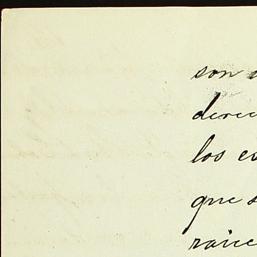 son
derec
los
que
raice